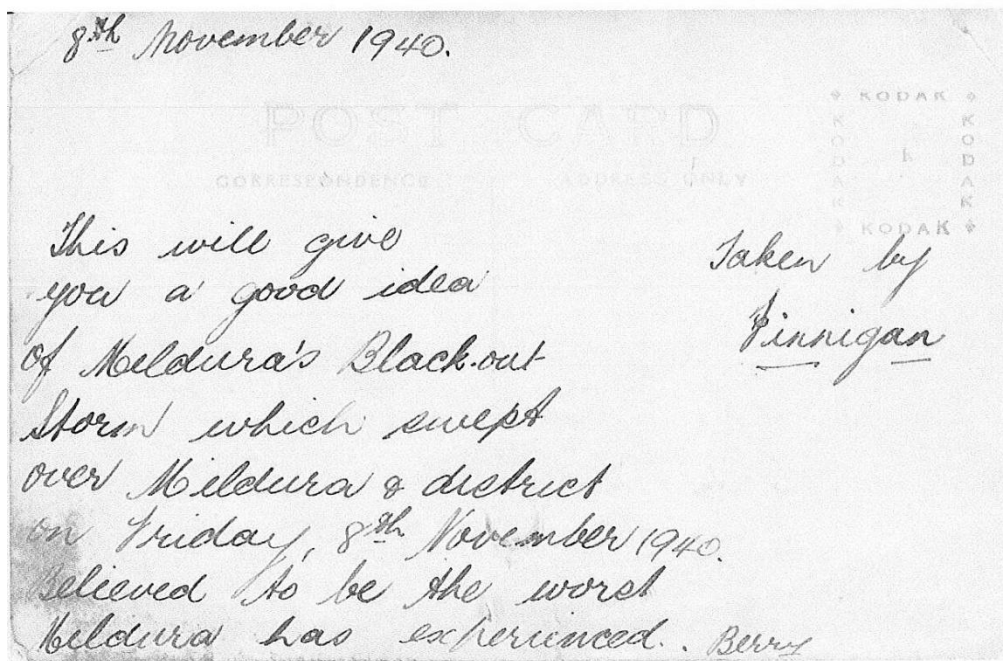 8th November 1940.
POST CARD
CORRESPONDENCE
ADDRESS ONLY
KODAK
KODAK
KODAK
KODAK
This will give
you a good idea
of Mildura's Black-out
Storm which swept
over Mildura & district
on Friday, 8th November 1940.
Believed to be the worst
Mildura has experienced. Berry
Taken by
Finnigan